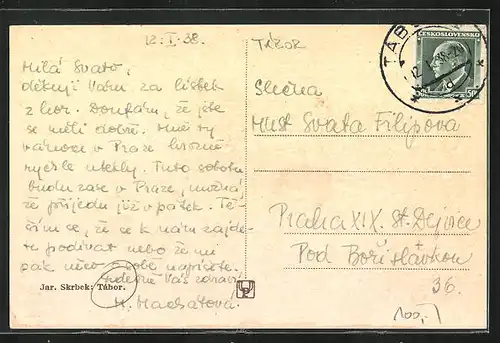 12. I. 38.
Milá Svato,
děkuji Vám za lístek
z hor. Doufám, že jste
se měli dobře. Mně ty
vánoce v Praze hrozně
rychle utekly. Tuto sobotu
budu zase v Praze, možná
že přijedu již v pátek. Tě-
ším se, že se k nám zajde-
te podívat nebo že mi
pak něco o sobě napíšete.
Srdečně Vás zdraví
Jar. Skrbek: Tábor.
TÁBOR
ČESKOSLOVENSKO
50
TÁBOR
12. I. 38
Slečna
Svata Filipova
Praha XIX. st. Dejvice
Pod Bořislavkou
36.
100,-